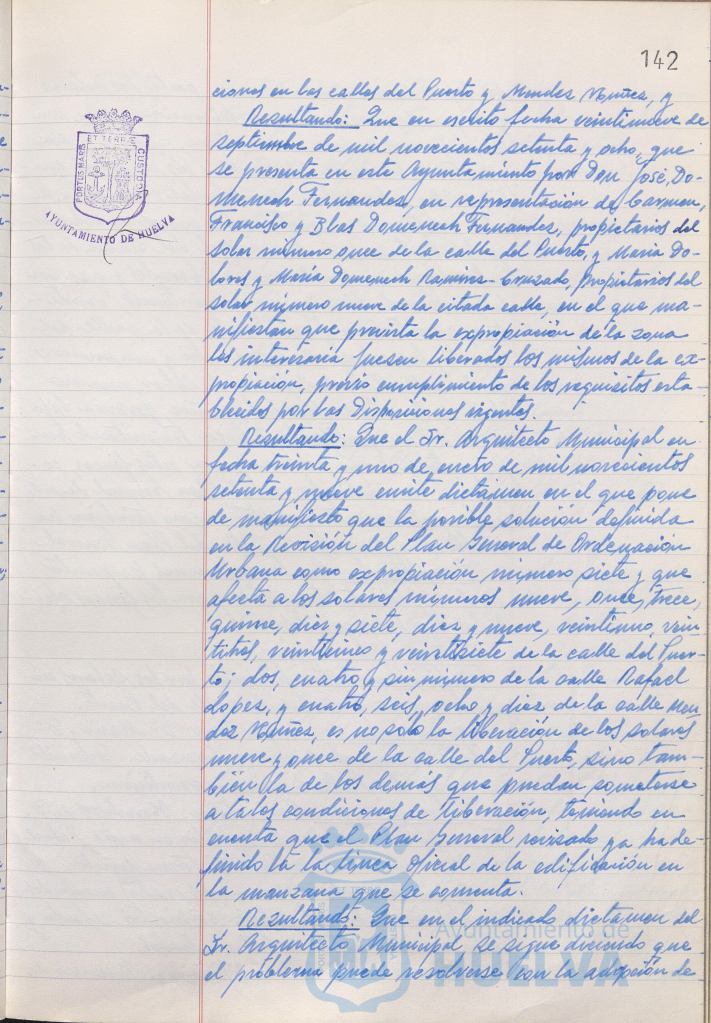 142
PORTUS MARIS ET TERRAE CUSTODIA
AYUNTAMIENTO DE HUELVA
ciones en las calles del Puerto y Mendez Nuñez, y
Resultando: Que en escrito fecha veintinueve de
septiembre de mil novecientos setenta y ocho, que
se presenta en este Ayuntamiento por Don José Do-
menech Fernandez, en representación de Carmen,
Francisco y Blas Domenech Fernandez, propietarios del
solar número once de la calle del Puerto, y Maria Do-
lores y María Domenech Ramirez-Cruzado, propietarios del
solar número nueve de la citada calle, en el que ma-
nifiestan que prevista la expropiación de la zona
les interesaria fuesen liberados los mismos de la ex-
propiación, previo cumplimiento de los requisitos esta-
blecidos por las Disposiciones vigentes.
Resultando: Que el Sr. Arquitecto Municipal en
fecha treinta y uno de enero de mil novecientos
setenta y nueve emite dictamen en el que pone
de manifiesto que la posible solución definida
en la Revisión del Plan General de Ordenación
Urbana como expropiación número siete y que
afecta a los solares números nueve, once, trece,
quince, diez y siete, diez y nueve, veintiuno, vein-
titres, veinticinco y veintisiete de la calle del Puer-
to; dos, cuatro y sin número de la calle Rafael
Lopez, y cuatro, seis, ocho y diez de la calle Men-
dez Nuñez, es no solo la liberación de los solares
nueve y once de la calle del Puerto, sino tam-
bién la de los demás que puedan someterse
a tales condiciones de liberación, teniendo en
cuenta que el Plan General revisado ya ha de-
finido la la línea oficial de la edificación en
la manzana que se comenta.
Resultando: Que en el indicado dictamen del
Sr. Arquitecto Municipal se sigue diciendo que
el problema puede resolverse con la adopción de
Ayuntamiento de
HUELVA